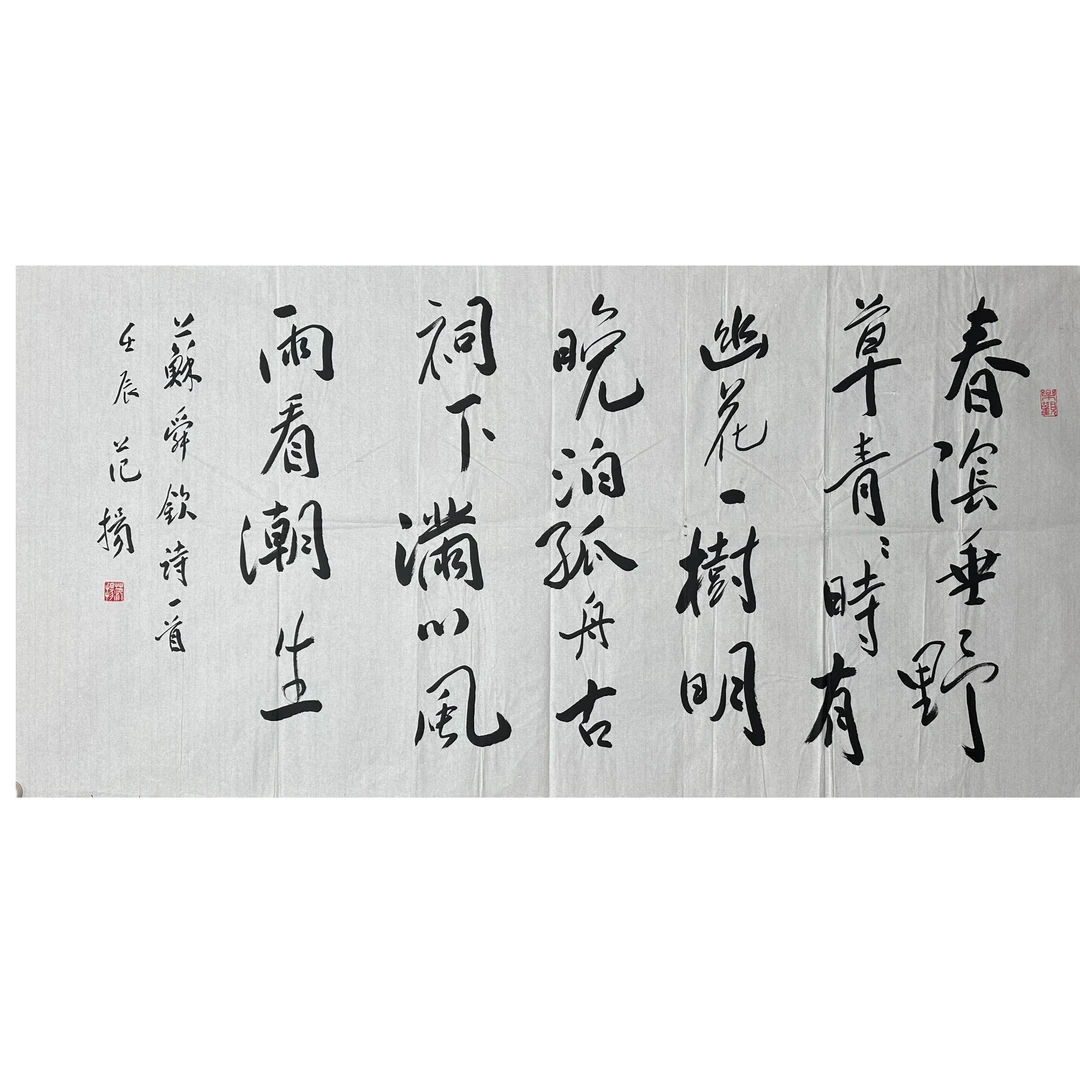 春陰垂野
草青〻時有
幽花一樹明
晚泊孤舟古
祠下滿川風
雨看潮生
蘇舜欽詩一首
壬辰范揚